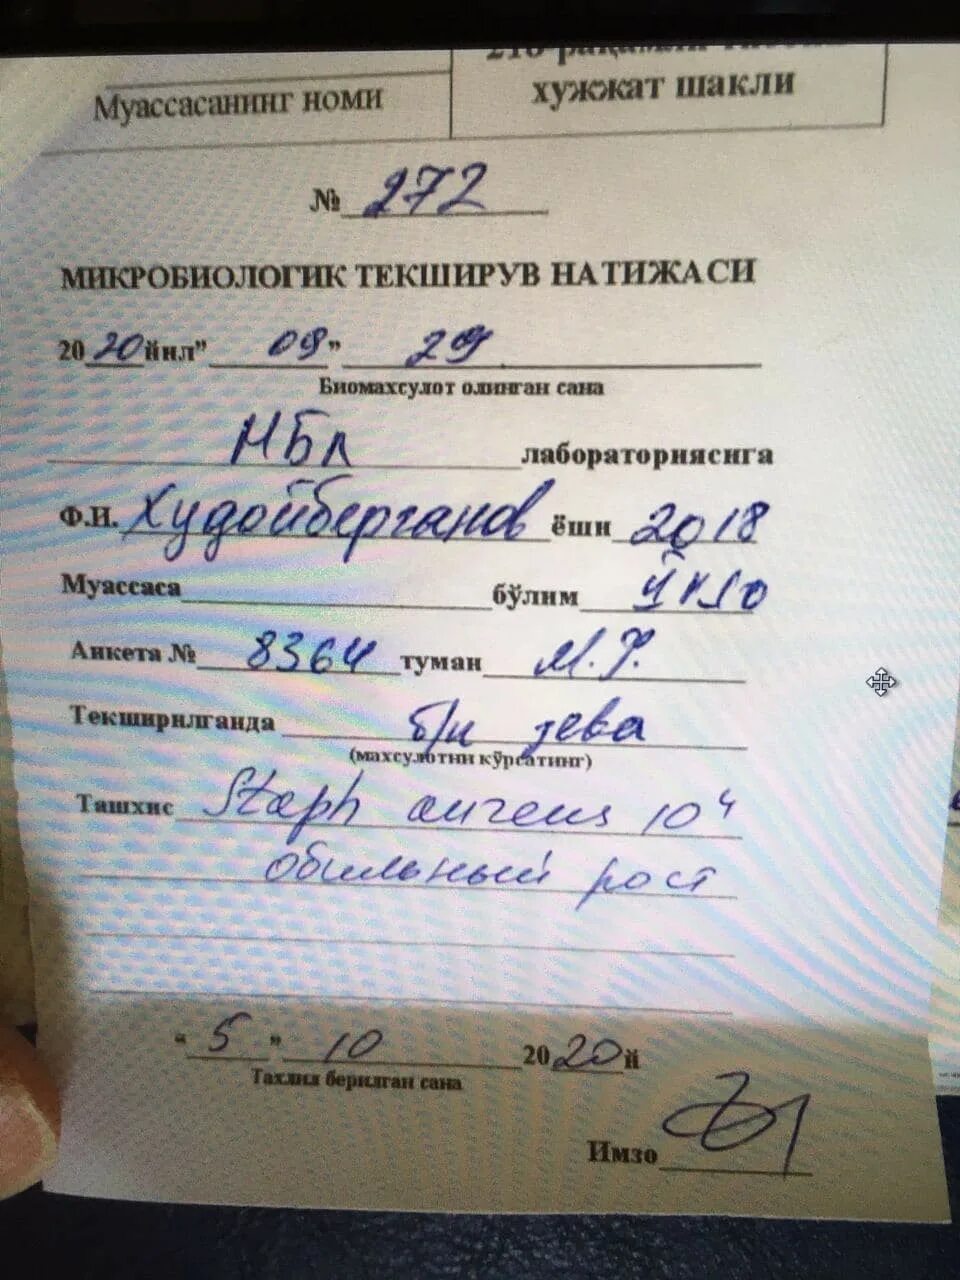 Муассасанинг номи
хужжат шакли
№ 272
МИКРОБИОЛОГИК ТЕКШИРУВ НАТИЖАСИ
2020 йил" 09" 29
Биомахсулот олинган сана
НБЛ лабораториясига
Ф.И. Худойберганов ёши 2018
Муассаса бўлим
Анкета № 8364 туман М.Ф.
Текширилганда б/н зева
(махсулотни кўрсатинг)
Ташхис Staph aureus 10⁴
обильный рост
"5" 10 2020й
Тахлил берилган сана
Имзо